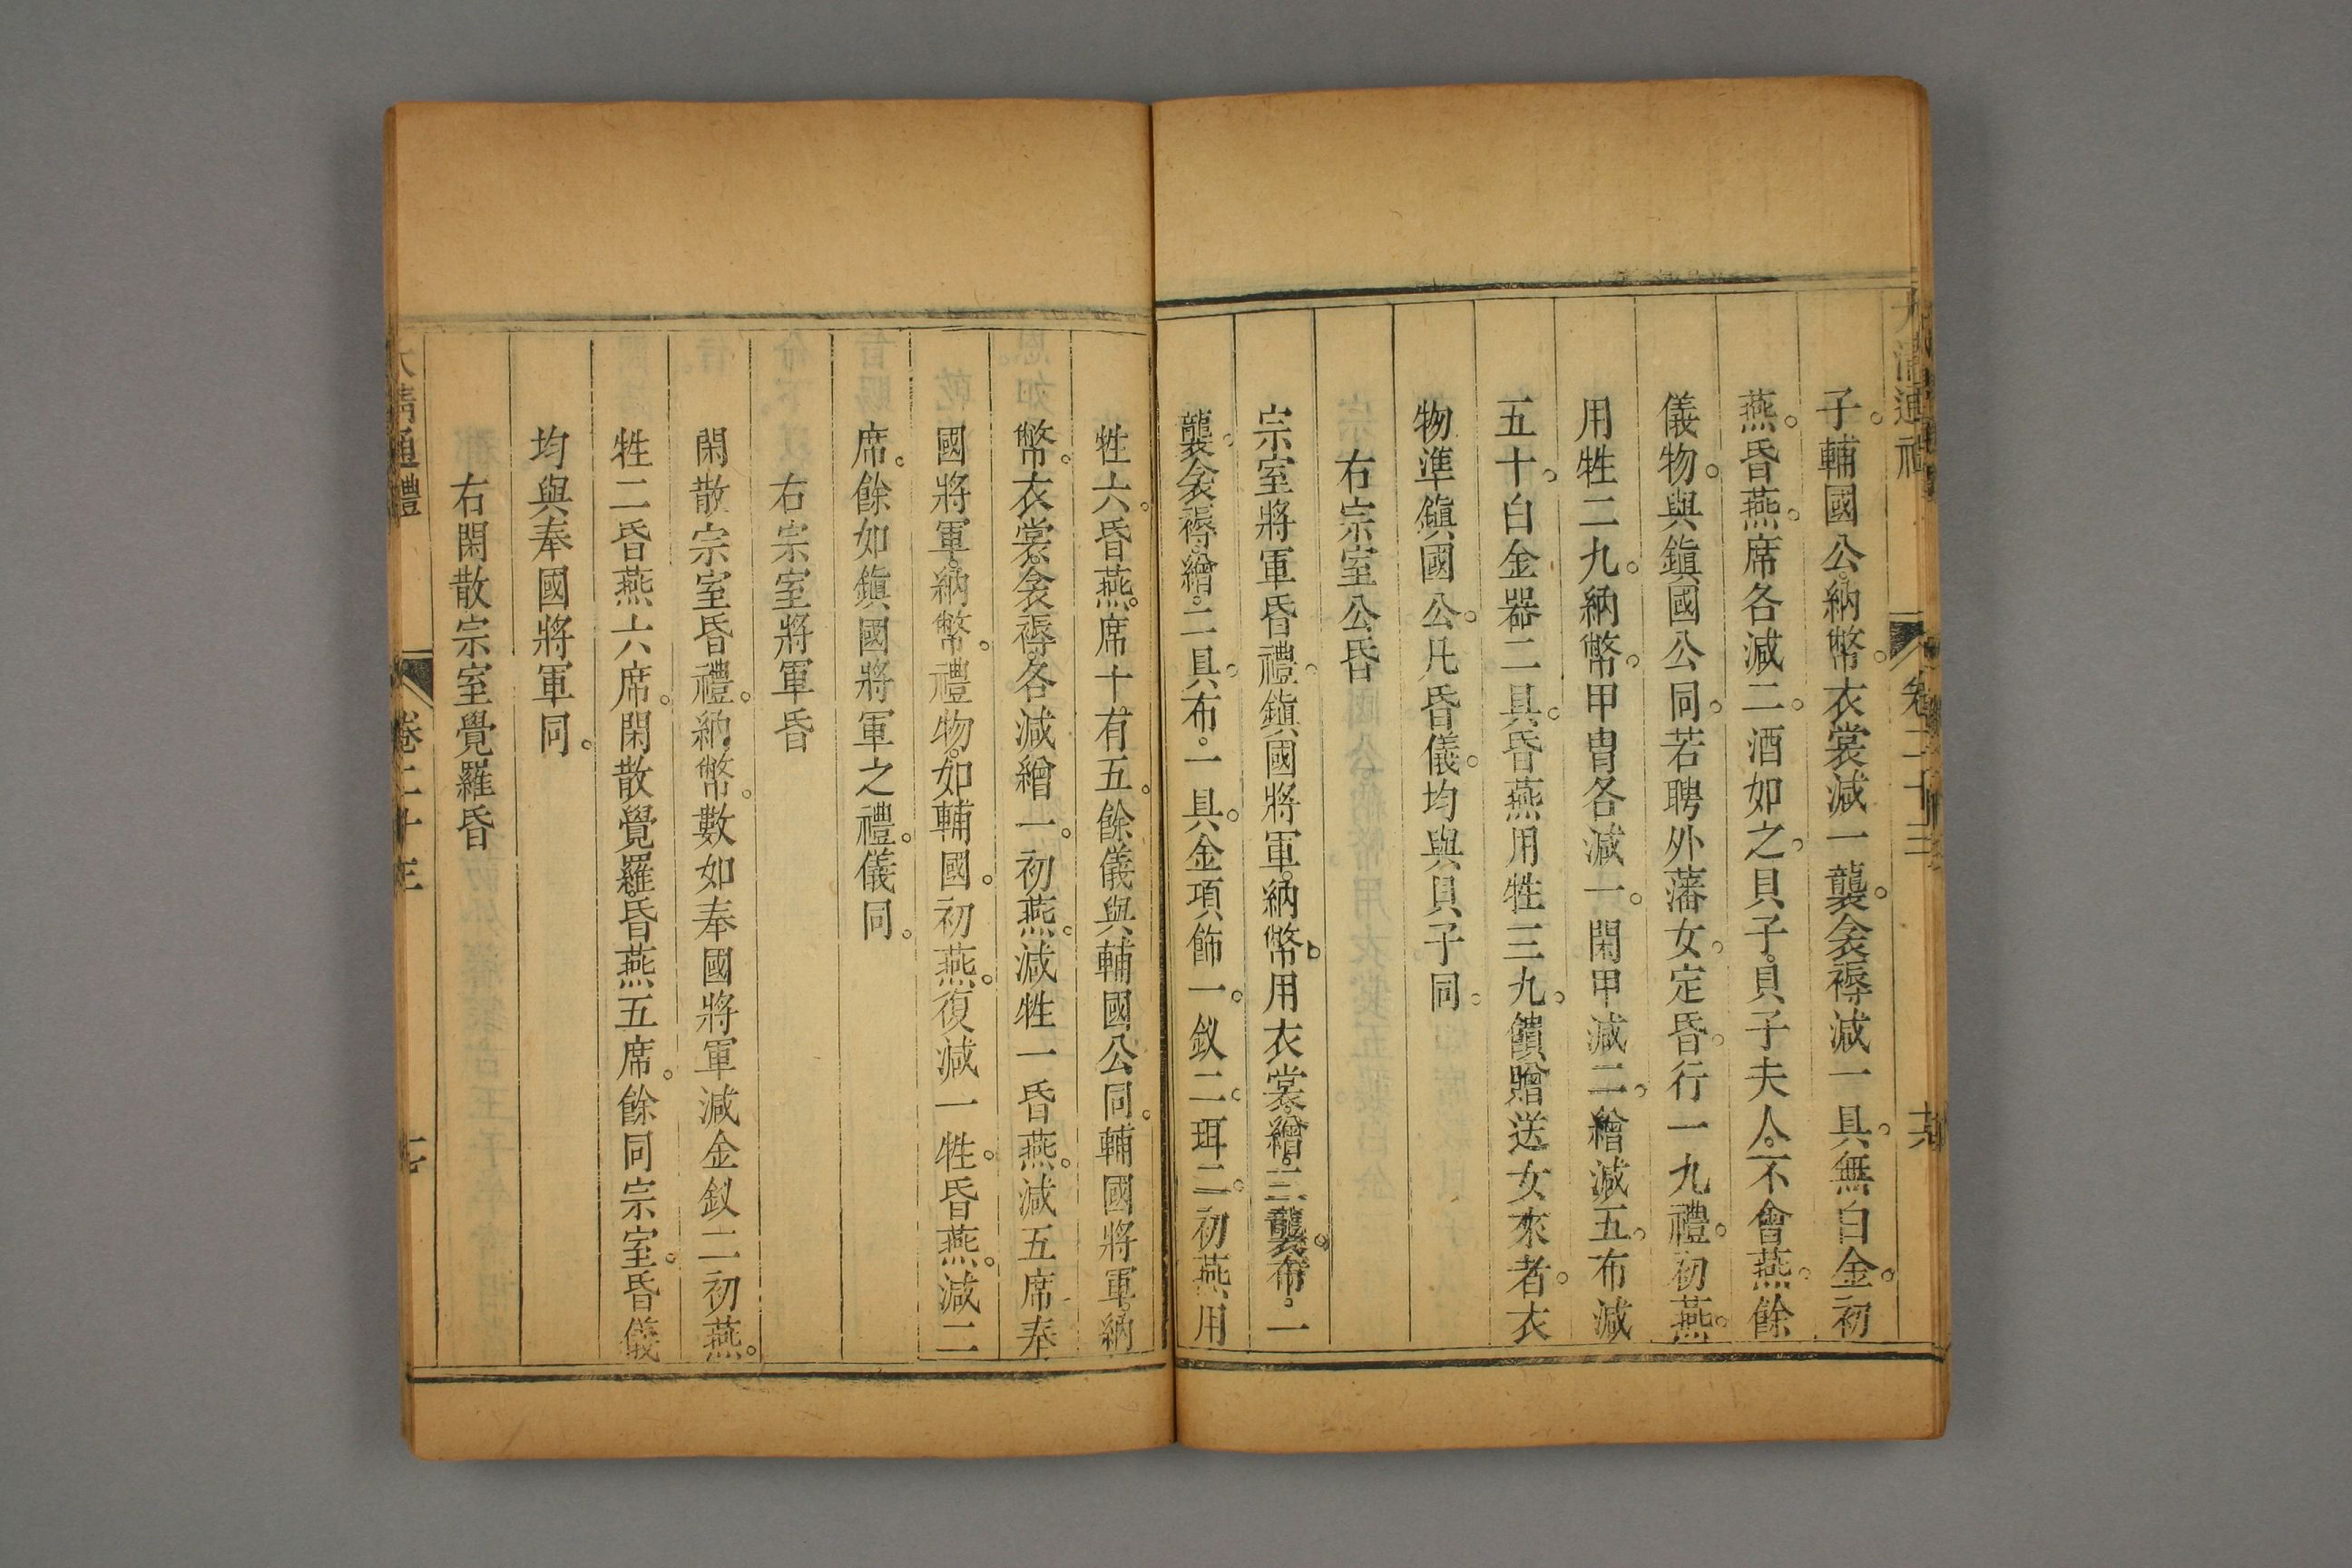 大清通禮 卷二十三
子。輔國公。納幣。衣裳減一襲。衾褥減一具。無白金。初
燕。昏燕。席各減二。酒如之。貝子。貝子夫人。不會燕。餘
儀物。與鎮國公同。若聘外藩女。定昏。行一九禮。初燕。
用牲二九。納幣。甲冑各減一。閑甲減二。繒減五。布減
五十。白金器二具。昏燕用牲三九。饋贈送女來者。衣
物準鎮國公。凡昏儀。均與貝子同。
右宗室公昏
宗室將軍昏禮。鎮國將軍。納幣。用衣裳。繒。三襲。布。一
襲。衾褥。繒。二具。布。一具。金項飾一。釵二。珥二。初燕用
牲六。昏燕。席十有五。餘儀與輔國公同。輔國將軍。納
幣。衣裳。衾褥。各減繒一。初燕。減牲一。昏燕。減五席。奉
國將軍。納幣。禮物。如輔國。初燕。復減一牲。昏燕。減二
席。餘如鎮國將軍之禮。儀同。
右宗室將軍昏
閑散宗室昏禮。納幣。數如奉國將軍。減金釵二。初燕。
牲二。昏燕六席。閑散覺羅。昏燕五席。餘同宗室。昏儀
均與奉國將軍同。
右閑散宗室覺羅昏
大清通禮 卷二十三